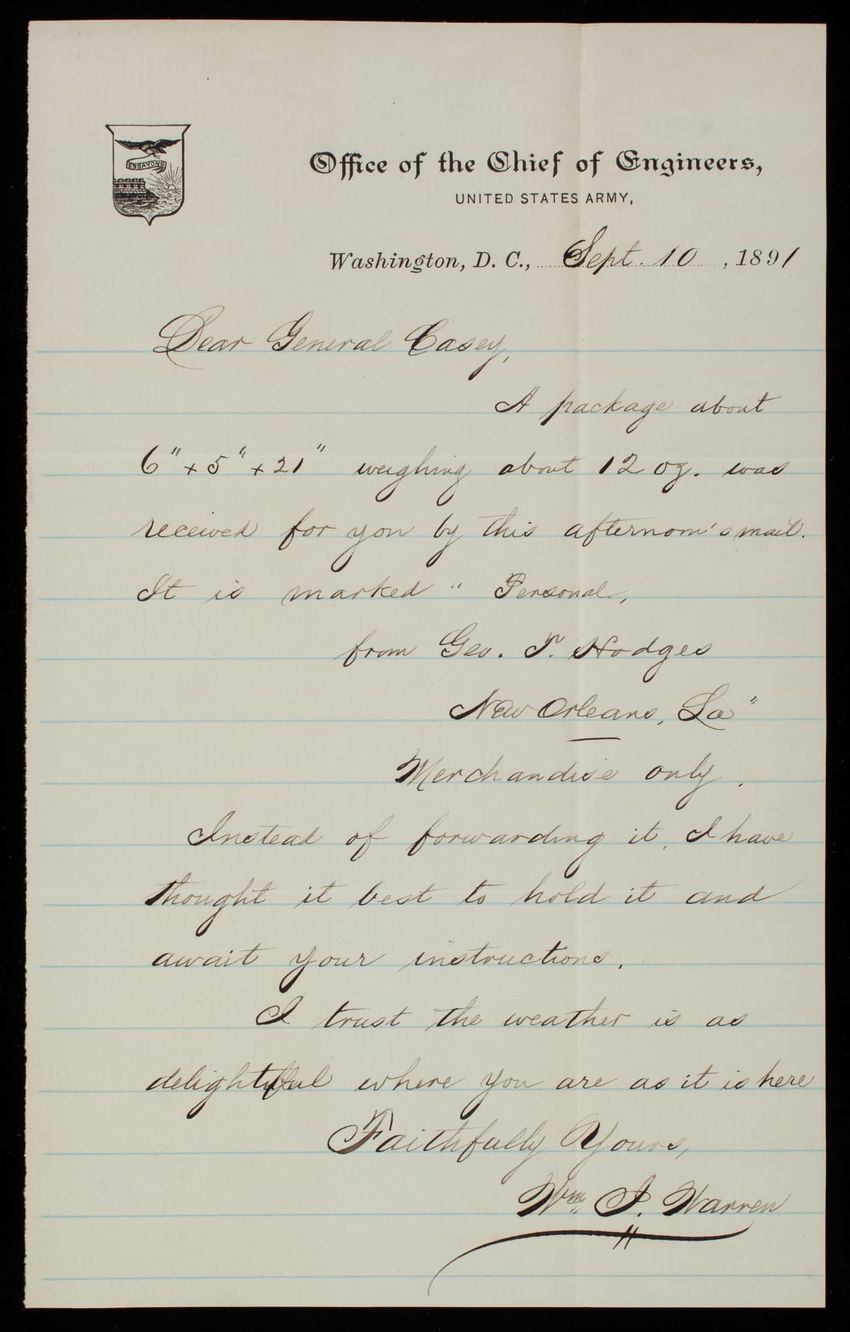 ESSAYONS
Office of the Chief of Engineers,
UNITED STATES ARMY,
Washington, D. C., Sept. 10, 1891
Dear General Casey,
A package about
6" x 5" x 21" weighing about 12 oz. was
received for you by this afternoon's mail.
It is marked "Personal,
from Geo. T. Hodges
New Orleans, La"
Merchandise only.
Instead of forwarding it, I have
thought it best to hold it and
await your instructions.
I trust the weather is as
delightful where you are as it is here
Faithfully Yours,
Wm. J. Warren